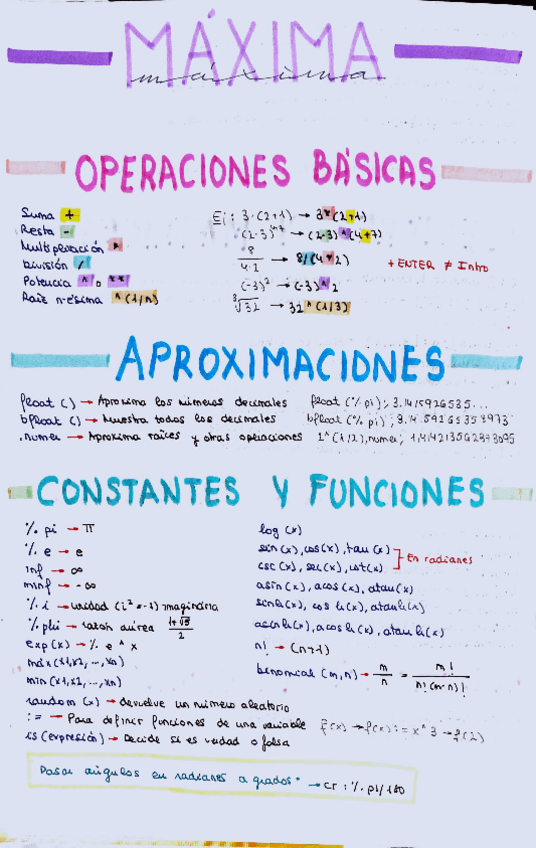 MÁXIMA
máxima
OPERACIONES BÁSICAS
Suma +
Resta -
Multiplicación *
División /
Potencia ^ o **
Raíz n-ésima ^(1/n)
Ej: 3·(2+1) → 3*(2+1)
(2·3)⁴⁺⁷ → (2·3)^(4+7)
8/4·2 → 8/(4*2)
(-3)² → (-3)^2
∛32 → 32^(1/3)
+ ENTER ≠ Intro
APROXIMACIONES
float () → Aproxima los números decimales float (% pi); 3.1415926535...
bfloat () → Muestra todos los decimales bfloat (% pi);
,numer → Aproxima raíces y otras operaciones 2^(1/2),numer;
CONSTANTES Y FUNCIONES
% pi → π
% e → e
inf → ∞
minf → -∞
% i → unidad (i² = -1) imaginaria
% phi → razón aúrea (1+√5)/2
exp (x) → % e ^ x
max (x1, x2, ..., xn)
min (x1, x2, ..., xn)
random (x) → devuelve un número aleatorio
:= → Para definir funciones de una variable f(x) → f(x):= x^3 → f(2)
is (expresión) → Decide si es verdad o falsa
log (x)
sin (x), cos (x), tan (x)
csc (x), sec (x), cot (x)
En radianes
asin (x), acos (x), atan (x)
sinh (x), cosh (x), atanh (x)
asinh (x), acosh (x), atanh (x)
n! → (n>1)
binomial (m,n) → m/n = m!/n!(m-n)!
Pasar ángulos en radianes a grados° → cr : % pi/180